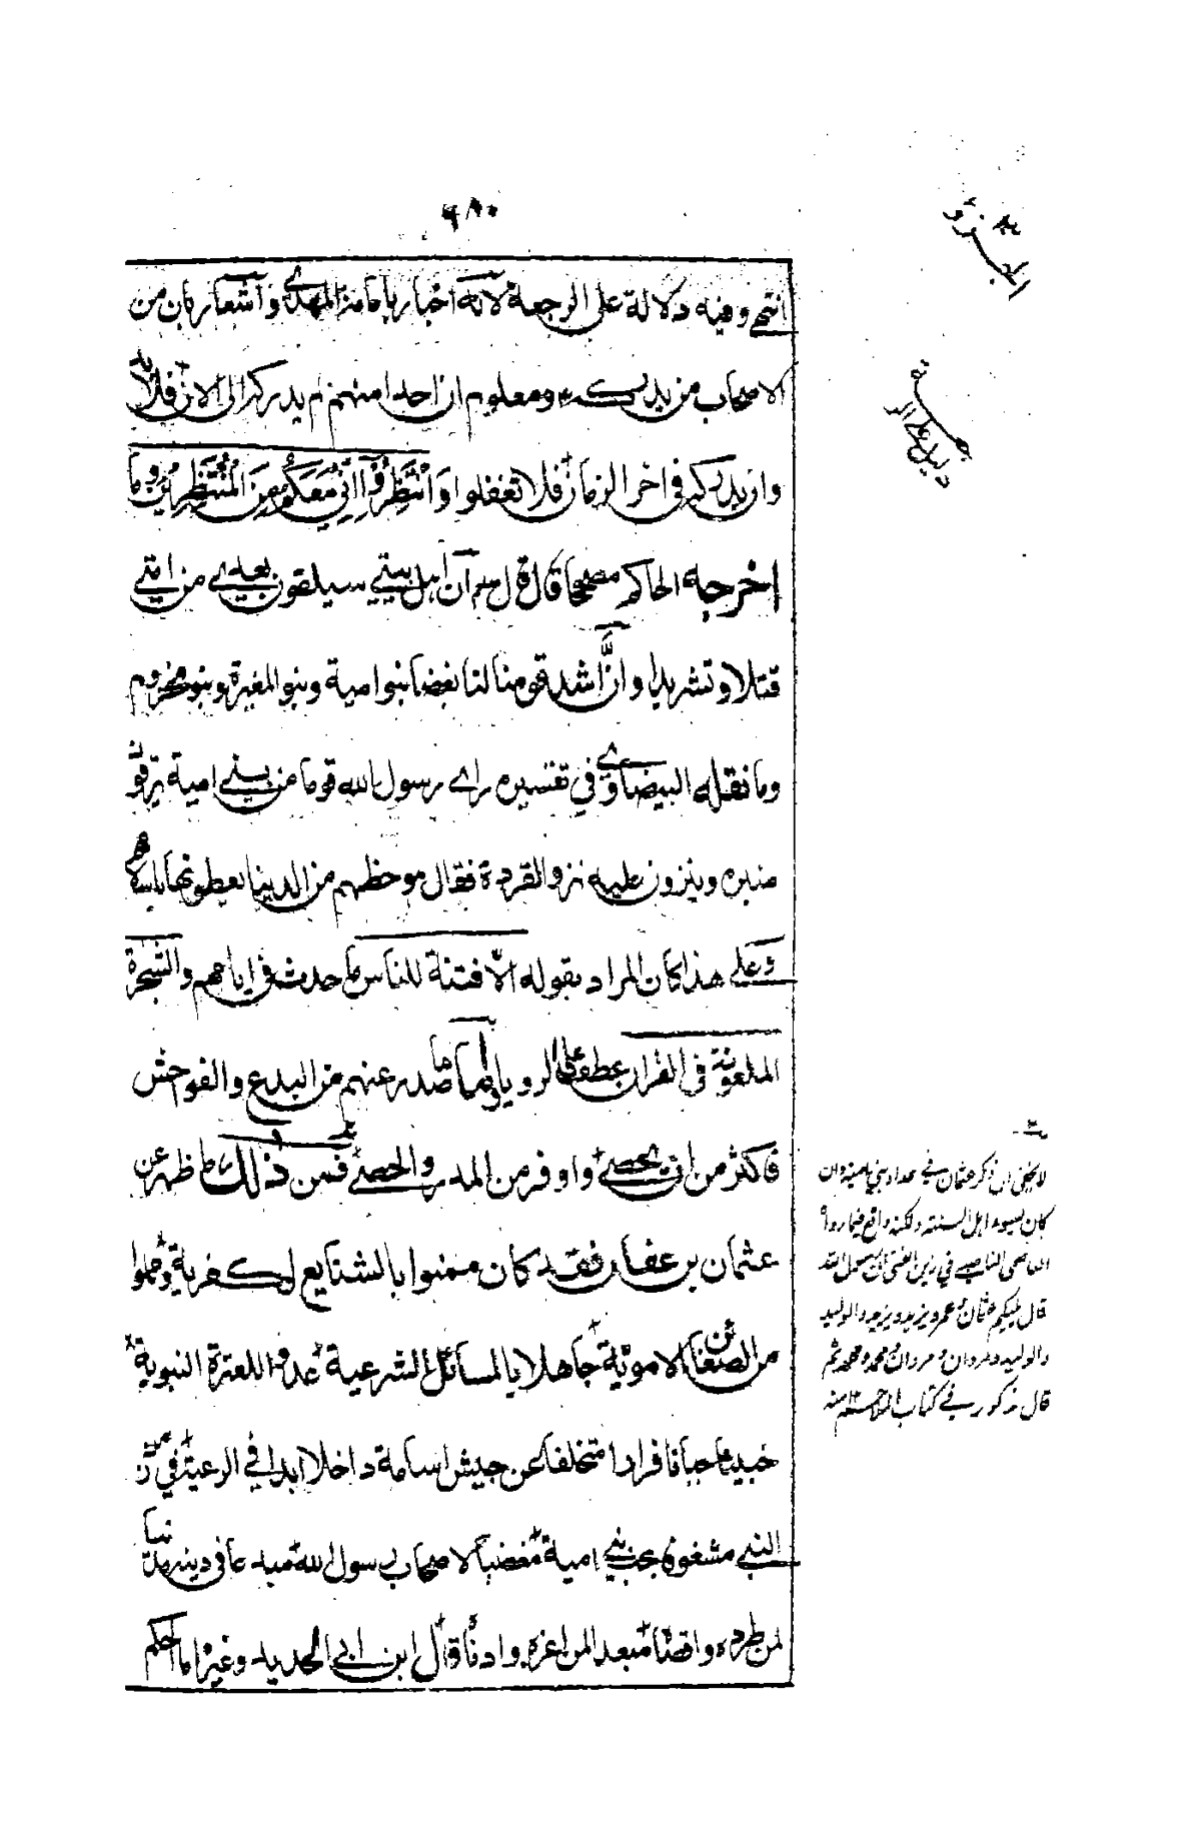 ٤٨٠
انتهى وفيه دلالة على الرجعة لانه اخبار بامامنا المهدى واشعار بان من
الاصحاب من يدركه ومعلوم ان احدا منهم لم يدركه الى الان فلا بد
وان يدركه فى اخر الزمان فلا تغفلوا وَانْتَظِرُوْا اِنِّىْ مَعَكُمْ مِنَ الْمُنْتَظِرِيْنَ وما
اخرجه الحاكم مصححا قال قال صلعم ان اهل بيتي سيلقون بعدى من امتي
قتلا وتشريدا وان اشد قومنا لنا بغضا بنوا مية وبنو المغيرة وبنو مخزوم
وما نقله البيضاوى في تفسيره راى رسول الله قوما من بنى امية يرقون
منبره وينزون عليه نزو القردة فقال هو حظهم من الدنيا يعطونها باسلامهم
وعلى هذا كان المراد بقوله الا فتنة للناس ما حدث فى ايامهم والشجرة
الملعونة فى القران عطف على الرويا واما ما صدر عنهم من البدع والفواحش
فاكثر من ان يحصى واوفر من المدر والحصى فمن ذلك ما ظهر عن
عثمان بن عفان فقد كان ممنوا بالشنايع الكفرية ومملوا
من الضغائن الاموية جاهلا بالمسائل الشرعية عدوا للعترة النبوية
خبيثا جبانا فرارا متخلفا عن جيش اسامة داخلا ابدا في الرعية في زمن
النبي مشغوفا بحب بني امية مغضبا لاصحاب رسول الله
لمن طرده واقصاه مبعدا لمن اعزه وادناه قال ابن ابى الحديد وغيره اما الحكم
الجزو
دليل على الرجعة
لا يخفى ان ذكر عثمان في عداد بني امية وان
كان يسوء اهل السنة ولكنه واقع فيما رواه
العاصمى الناصبي في زين الفتى ان رسول الله
قال يليكم عثمان وعمرو يزيد ويزيد والوليد
والوليد ومروان ومروان ومحمد ومحمد ثم
قال مذكور في كتاب الملاحم منه